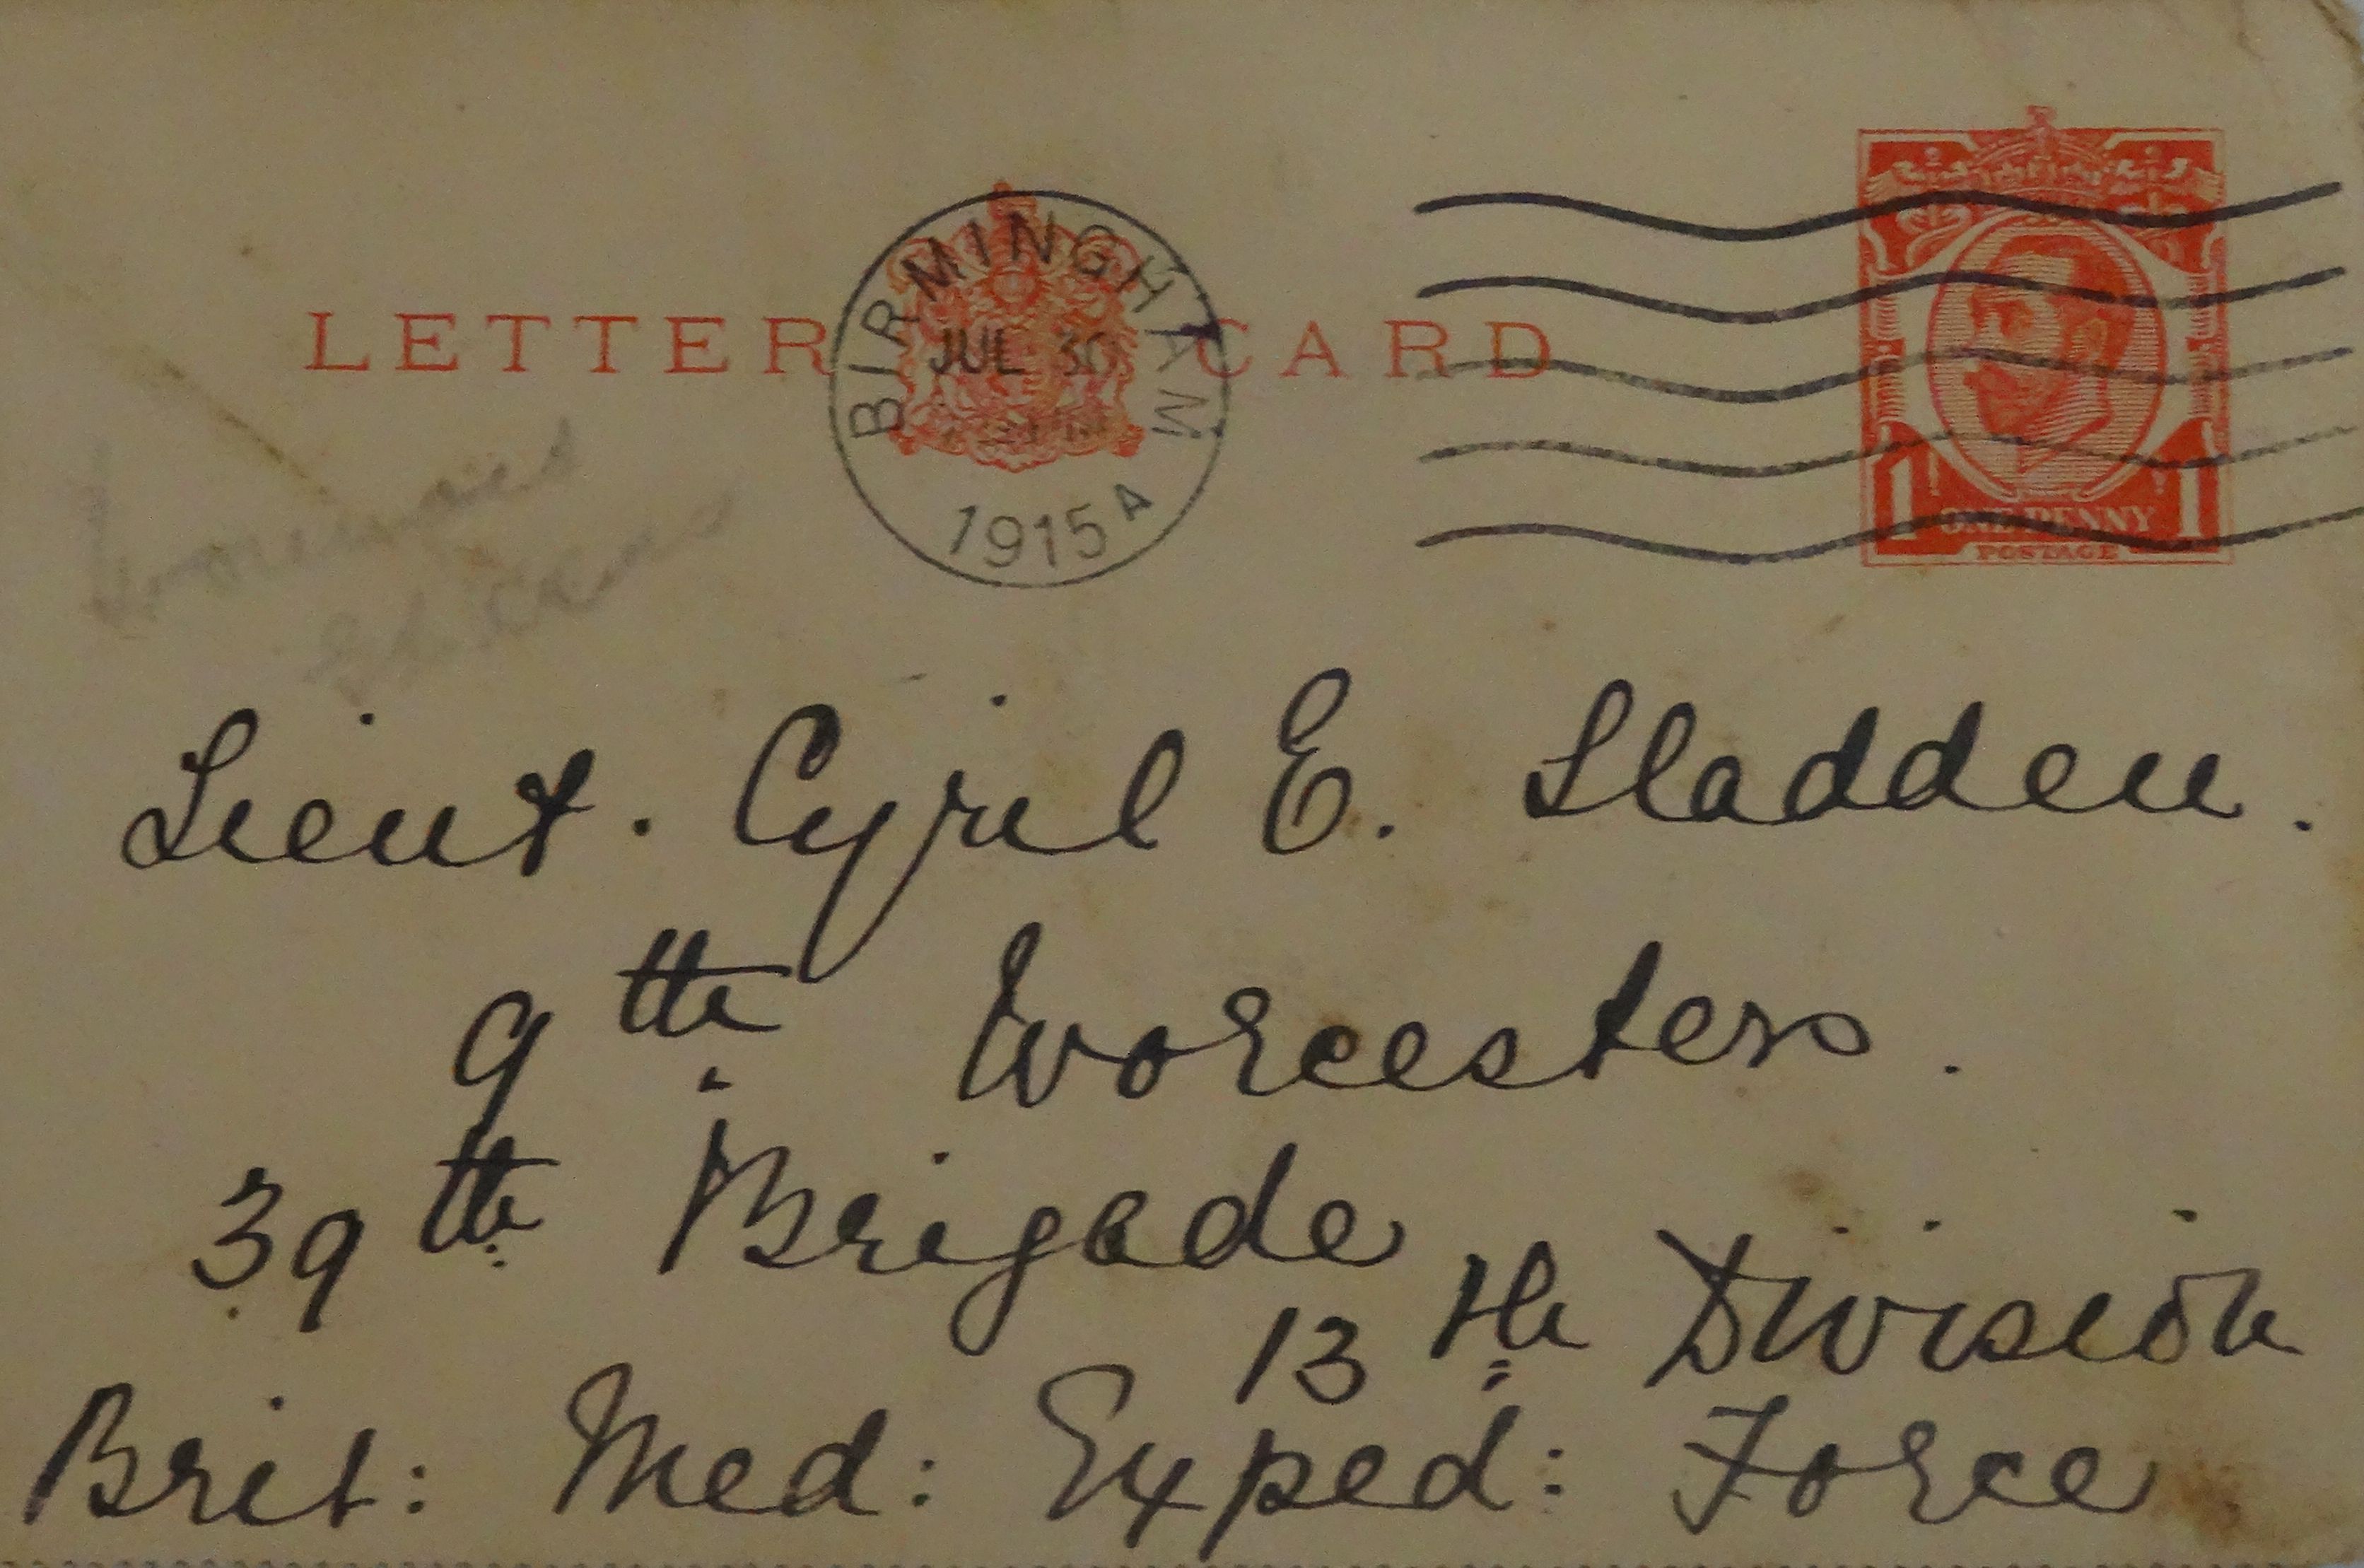 BIRMINGHAM
JUL 30
1915 A
LETTER CARD
1 ONE PENNY 1
POSTAGE
Lieut. Cyril E. Sladden.
9th Worcesters.
39th Brigade
13th Division
Brit: Med: Exped: Force